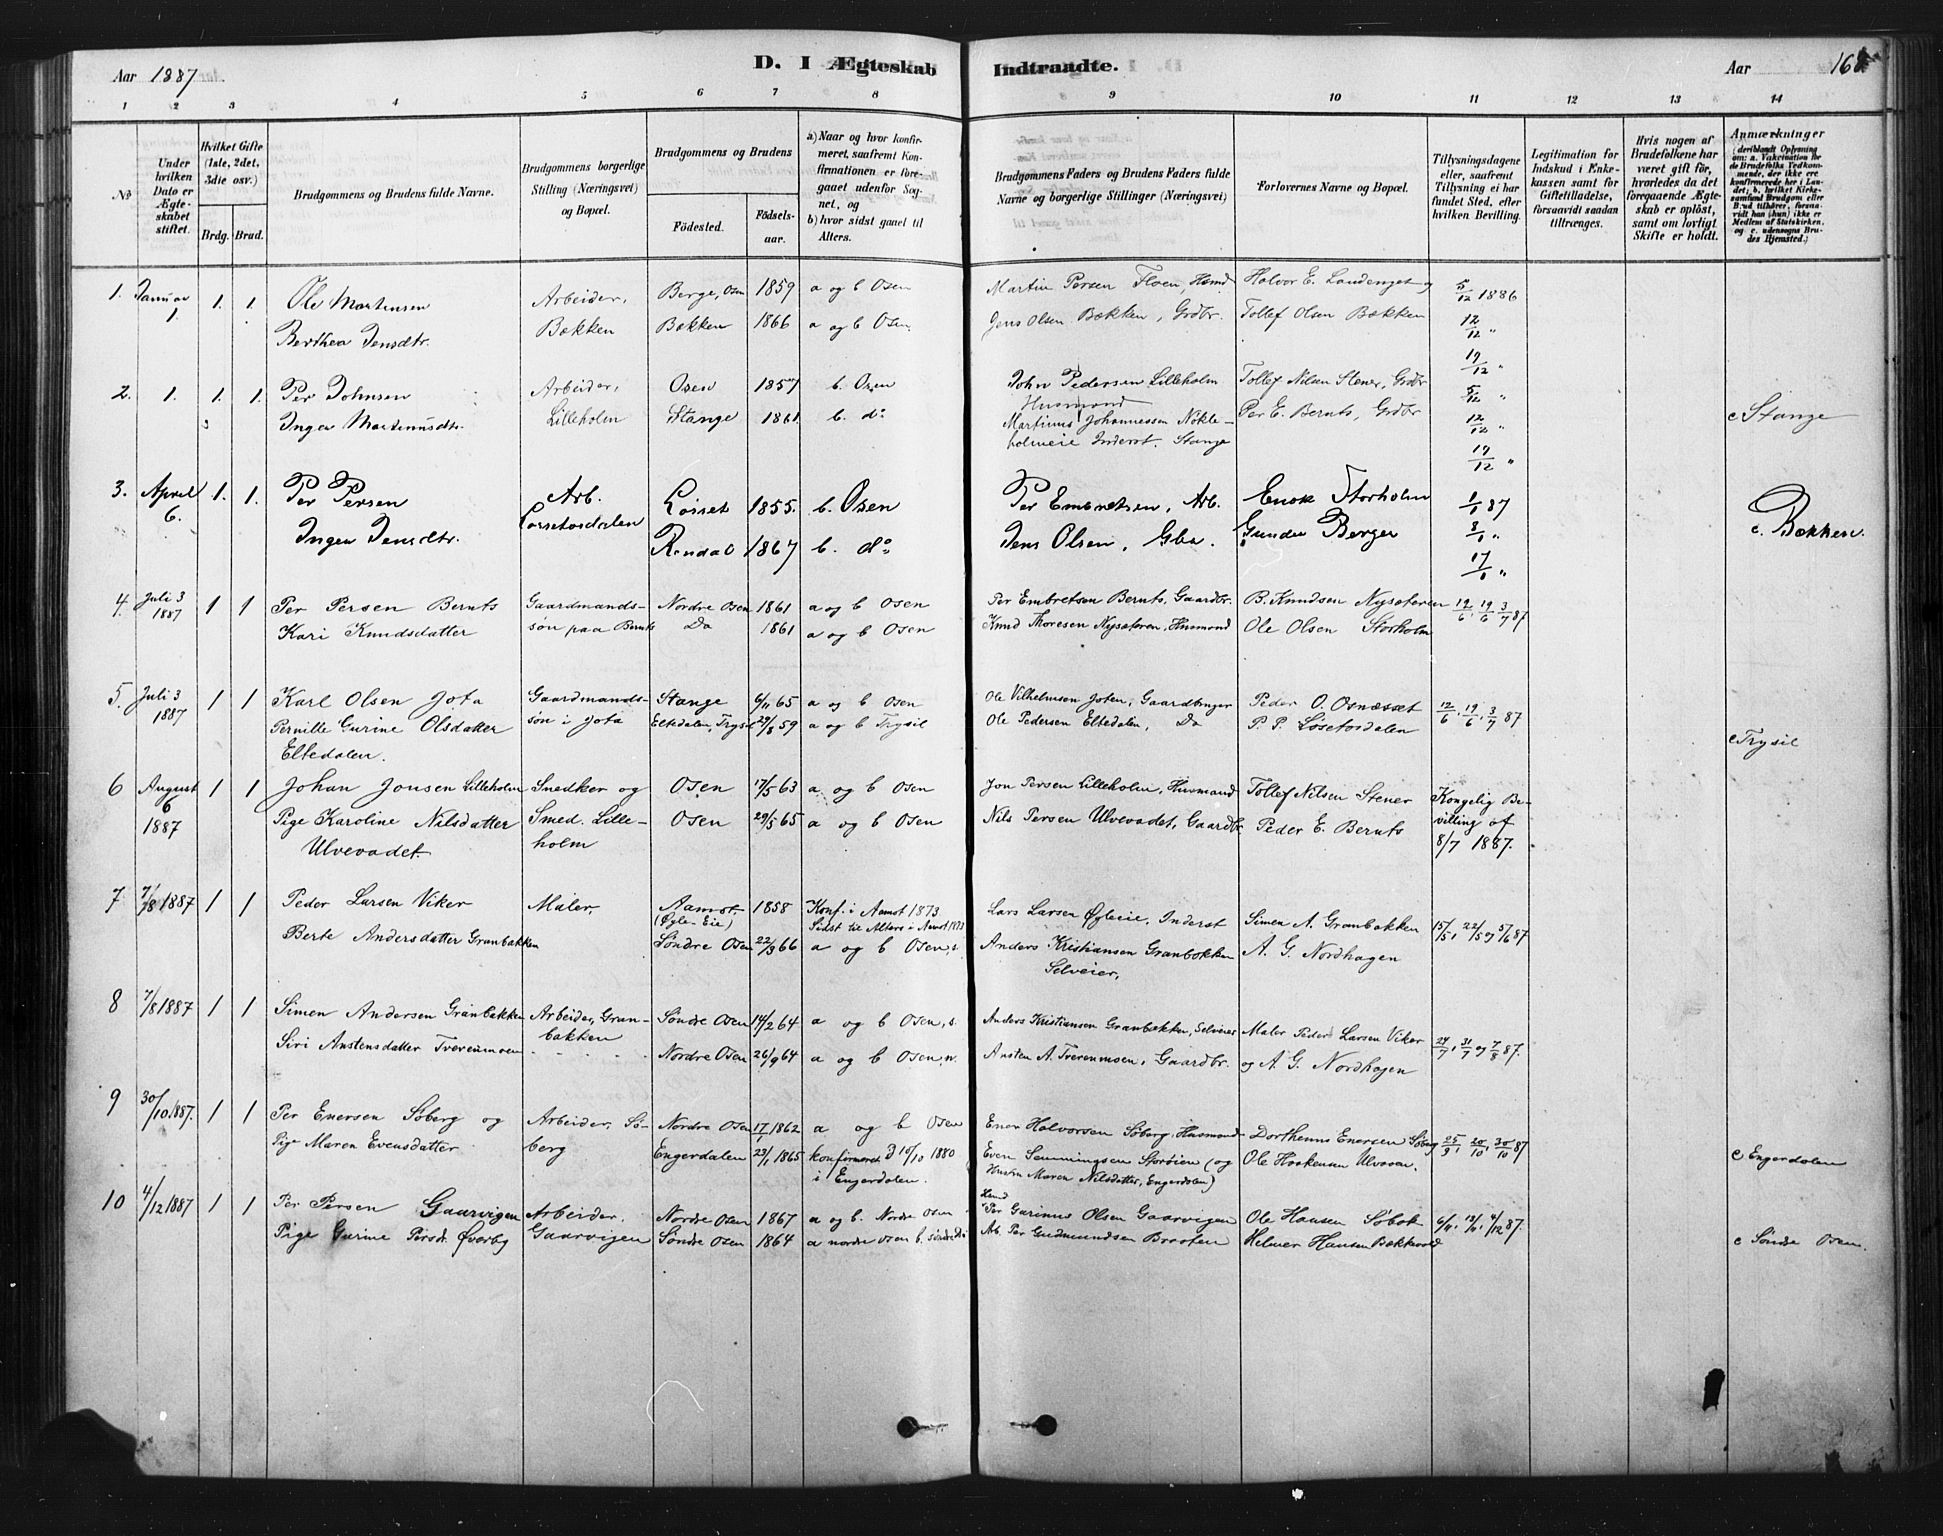 Aar 1887.
D. I Ægteskab Indtraadte.
Aar 168
1 2 3 4 5 6 7 8 9 10 11 12 13 14
No
Under hvilken Dato er Ægteskabet stiftet.
Hvilket Gifte (1ste, 2det, 3die osv.)
Brdg. Brud.
Brudgommens og Brudens fulde Navne.
Brudgommens borgerlige Stilling (Næringsvei) og Bopæl.
Brudgommens og Brudens
Fødested. Fødselsaar.
a) Naar og hvor konfirmeret, saafremt Konfirmationen er foregaaet udenfor Sognet, og
b) hvor sidst gaaet til Alters.
Brudgommens Faders og Brudens Faders fulde Navne og borgerlige Stillinger (Næringsvei)
Forlovernes Navne og Bopæl.
Tillysningsdagene eller, saafremt Tillysning ei har fundet Sted, efter hvilken Bevilling.
Legitimation for Indskud i Enkekassen samt for Giftetilladelse, forsaavidt saadan tiltrænges.
Hvis nogen af Brudefolkene har været gift før, hvorledes da det foregaaende Ægteskab er opløst, samt om lovligt Skifte er holdt.
Anmærkninger
1. Januar 1. 1. 1. Ole Martinsen Arbeider, Berge, Osen 1859 a og b Osen Martin Persen Floen, Husmd Halvor E. Landenget og 5/12 1886
Berthea Jensdtr. Bækken Bækken 1866 a og b Osen. Jens Olsen Bækken, Grdbr. Tollef Olsen Bækken 12/12 "
19/12 "
2. 1. 1. 1. Per Johnsen Arbeider, Osen 1857 b. Osen John Pedersen Lilleholm Husmand Tollef Nilsen Stener, Grdbr 5/12 "
Inger Martinusdtr. Lilleholm Stange 1861 b. do Martinus Johannessen Nokleholmeie Inderst. Stange Per E. Bernts, Grdbr 12/12 " c Stange
19/12 "
3. April 6. 1. 1. Per Persen Arb. Løsset 1855. b. Osen Per Embretsen, Arb. Enok Storholm 1/1 87
Inger Jensdtr. Løssetosdalen Rendal 1867 b. do Jens Olsen, Gbr. Gunder Berger 8/1 " c. Bækken.
17/1 "
4. Juli 3 1887 1 1 Per Persen Bernts Gaardmands- Nordre Osen 1861 a og b Osen Per Embretsen Bernts, Gaardbr. B. Knudsen Nysæteren 12/6, 19/6, 3/7 87
Kari Knudsdatter søn paa Bernts Do 1861 a og b Osen Knud Thoresen Nysæteren, Husmand Ole Olsen Storholm
5. Juli 3 1887 1 1 Karl Olsen Jota Gaardmands- Stange 6/11 65 a og b Osen Ole Vilhelmsen Joten, Gaardbruger Peder O. Osnæsset 12/6, 19/6, 3/7 87
Pernille Gurine Olsdatter søn i Jota Eltedalen, Trysil 29/8 59 a og b Trysil Ole Pedersen Eltedalen, Do P. P. Løsetosdalen c Trysil
Eltedalen.
6 August 6 1887 1 1 Johan Jonsen Lilleholm Snedker og Osen 17/5 63 a og b Osen Jon Persen Lilleholm, Husmand Tollef Nilsen Stener Kongelig Be-
Pige Karoline Nilsdatter Smed. Lille- Osen 29/5 65 a og b Osen Nils Persen Ulvevadet, Gaardbr. Peder E. Bernts villing af
Ulvevadet. holm 8/7 1887.
7 7/8 1887 1 1 Peder Larsen Viker Maler, Aamot. (Øgle-Eie) 1858 Konf. i Aamot 1873 Sidst til Alters i Aamot Lars Larsen Øgleie, Inderst Simen A. Granbækken 15/5, 22/5 og 5/6 87
Berte Andersdatter Granbækken Søndre Osen 22/9 66 a og b Osen, s. Anders Kristiansen Granbækken A. G. Nordhagen
Selveier,
8 7/8 1887 1 1 Simen Andersen Granbækken Arbeider, Gran- Søndre Osen 14/2 64 a og b Osen, s. Anders Kristiansen Granbækken, Selveier Maler Peder Larsen Viker 24/7, 31/7 og 7/8 87.
Siri Anstensdatter Tverenmoen bækken Nordre Osen 26/9 64 a og b Osen, n. Ansten A. Tverenmoen, Gaardbr. og A. G. Nordhagen
9 30/10 1887. 1 1 Per Enersen Søberg og Arbeider, Sø- Nordre Osen 17/1 1862 a og b Osen Ener Halvorsen Søberg, Husmand Dorthenus Enersen Søberg 25/9, 20/10, 30/10 87
Pige Maren Evensdatter berg Engerdalen 23/1 1865 konfirmeret d 10/10 1880 Even Semmingsen Storøien (og Ole Haakensen Ulvaaen. c Engerdalen
i Engerdalen. Hustru Maren Nilsdatter, Engerdalen)
10 4/12 1887 1 1 Per Persen Gaarvigen Arbeider. Nordre Osen 1867 a og b. Nordre Osen Husmd Per Gurinus Olsen Gaarvigen Ole Hansen Søbak 6/11, 13/11, 4/12 87.
Pige Gurine Persdr. Øverby Gaarvigen Søndre Osen 1864 a nordre Osen b. søndre do Arb. Per Gudmundsen Braaten Helmer Hansen Bækkevold c Søndre Osen.